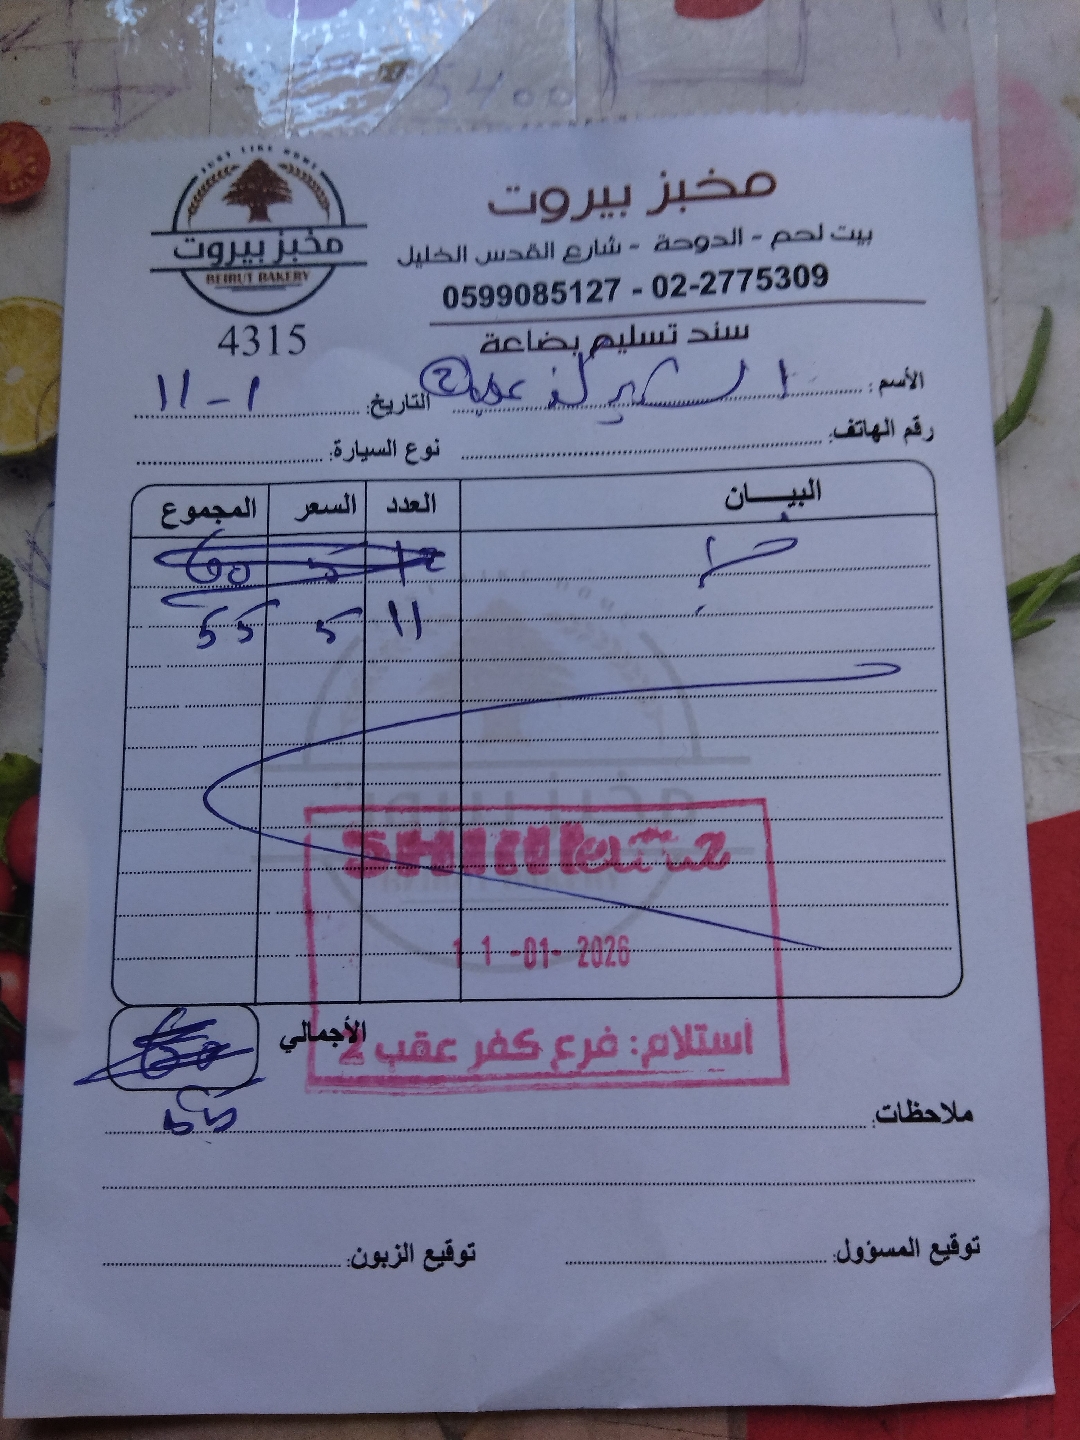 JUST LIKE HOME
مخبز بيروت
BEIRUT BAKERY
4315
مخبز بيروت
بيت لحم - الدوحة - شارع القدس الخليل
0599085127 - 02-2775309
سند تسليم بضاعة
الأسم: كفر عقب 2
التاريخ: 11-1
رقم الهاتف:
نوع السيارة:
البيـــان العدد السعر المجموع
خبز 12 5 60
11 5 55
11-01-2026
استلام: فرع كفر عقب 2
الأجمالي 60
55
ملاحظات:
توقيع المسؤول: توقيع الزبون: